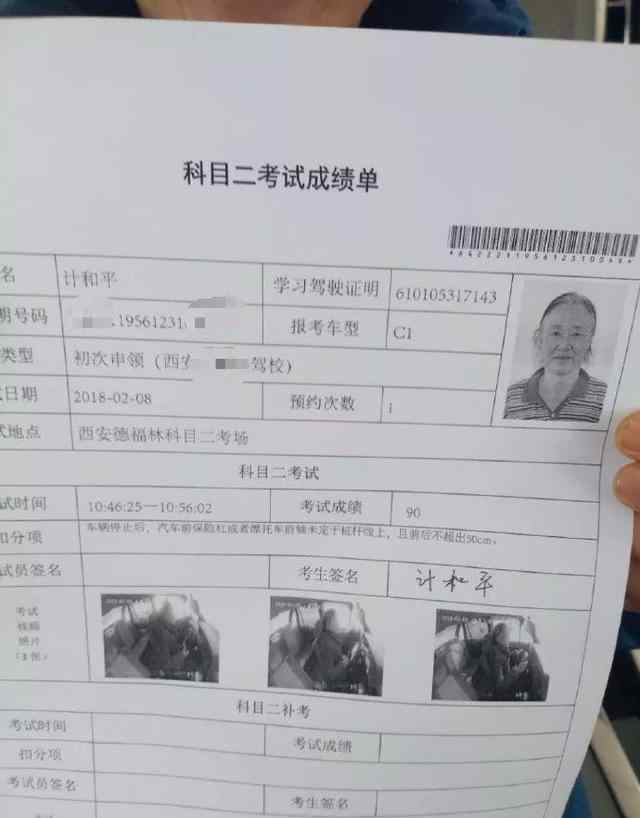 科目二考试成绩单
名 计和平 学习驾驶证明 610105317143
号码 19561231 报考车型 C1
类型 初次申领（西安 驾校）
日期 2018-02-08 预约次数 1
地点 西安德福林科目二考场
科目二考试
试时间 10:46:25—10:56:02 考试成绩 90
扣分项 车辆停止后，汽车前保险杠或者摩托车前轴未定于桩杆线上，且前后不超出50cm。
试员签名 考生签名 计和平
考试
视频
照片
（3 张）
科目二补考
考试时间 考试成绩
扣分项
考试员签名 考生签名